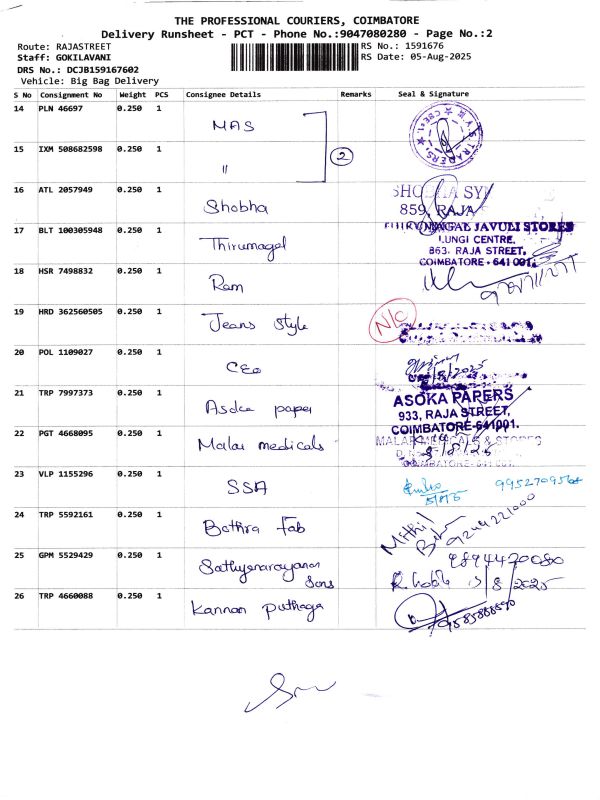 THE PROFESSIONAL COURIERS, COIMBATORE
Delivery Runsheet - PCT - Phone No.:9047080280 - Page No.:2
Route: RAJASTREET
RS No.: 1591676
Staff: GOKILAVANI
RS Date: 05-Aug-2025
DRS No.: DCJB159167602
Vehicle: Big Bag Delivery
S No Consignment No Weight PCS Consignee Details Remarks Seal & Signature
14 PLN 46697 0.250 1 MAS
15 IXM 508682598 0.250 1 " 2
16 ATL 2057949 0.250 1 Shobha
859, RAJA
17 BLT 100305948 0.250 1 Thirumagal
JAVULI STORES
LUNGI CENTRE,
863, RAJA STREET,
COIMBATORE - 641 001.
18 HSR 7498832 0.250 1 Ram
19 HRD 362560505 0.250 1 Jeans style N/C
20 POL 1109027 0.250 1 CEO
21 TRP 7997373 0.250 1 Asoka paper
ASOKA PAPERS
933, RAJA STREET,
COIMBATORE-641001.
22 PGT 4668095 0.250 1 Malar medicals
23 VLP 1155296 0.250 1 SSA
24 TRP 5592161 0.250 1 Bothra Fab
25 GPM 5529429 0.250 1 Sathyanarayanan Sons 9894420080
5/8/2025
26 TRP 4660088 0.250 1 Kannan Puthaga